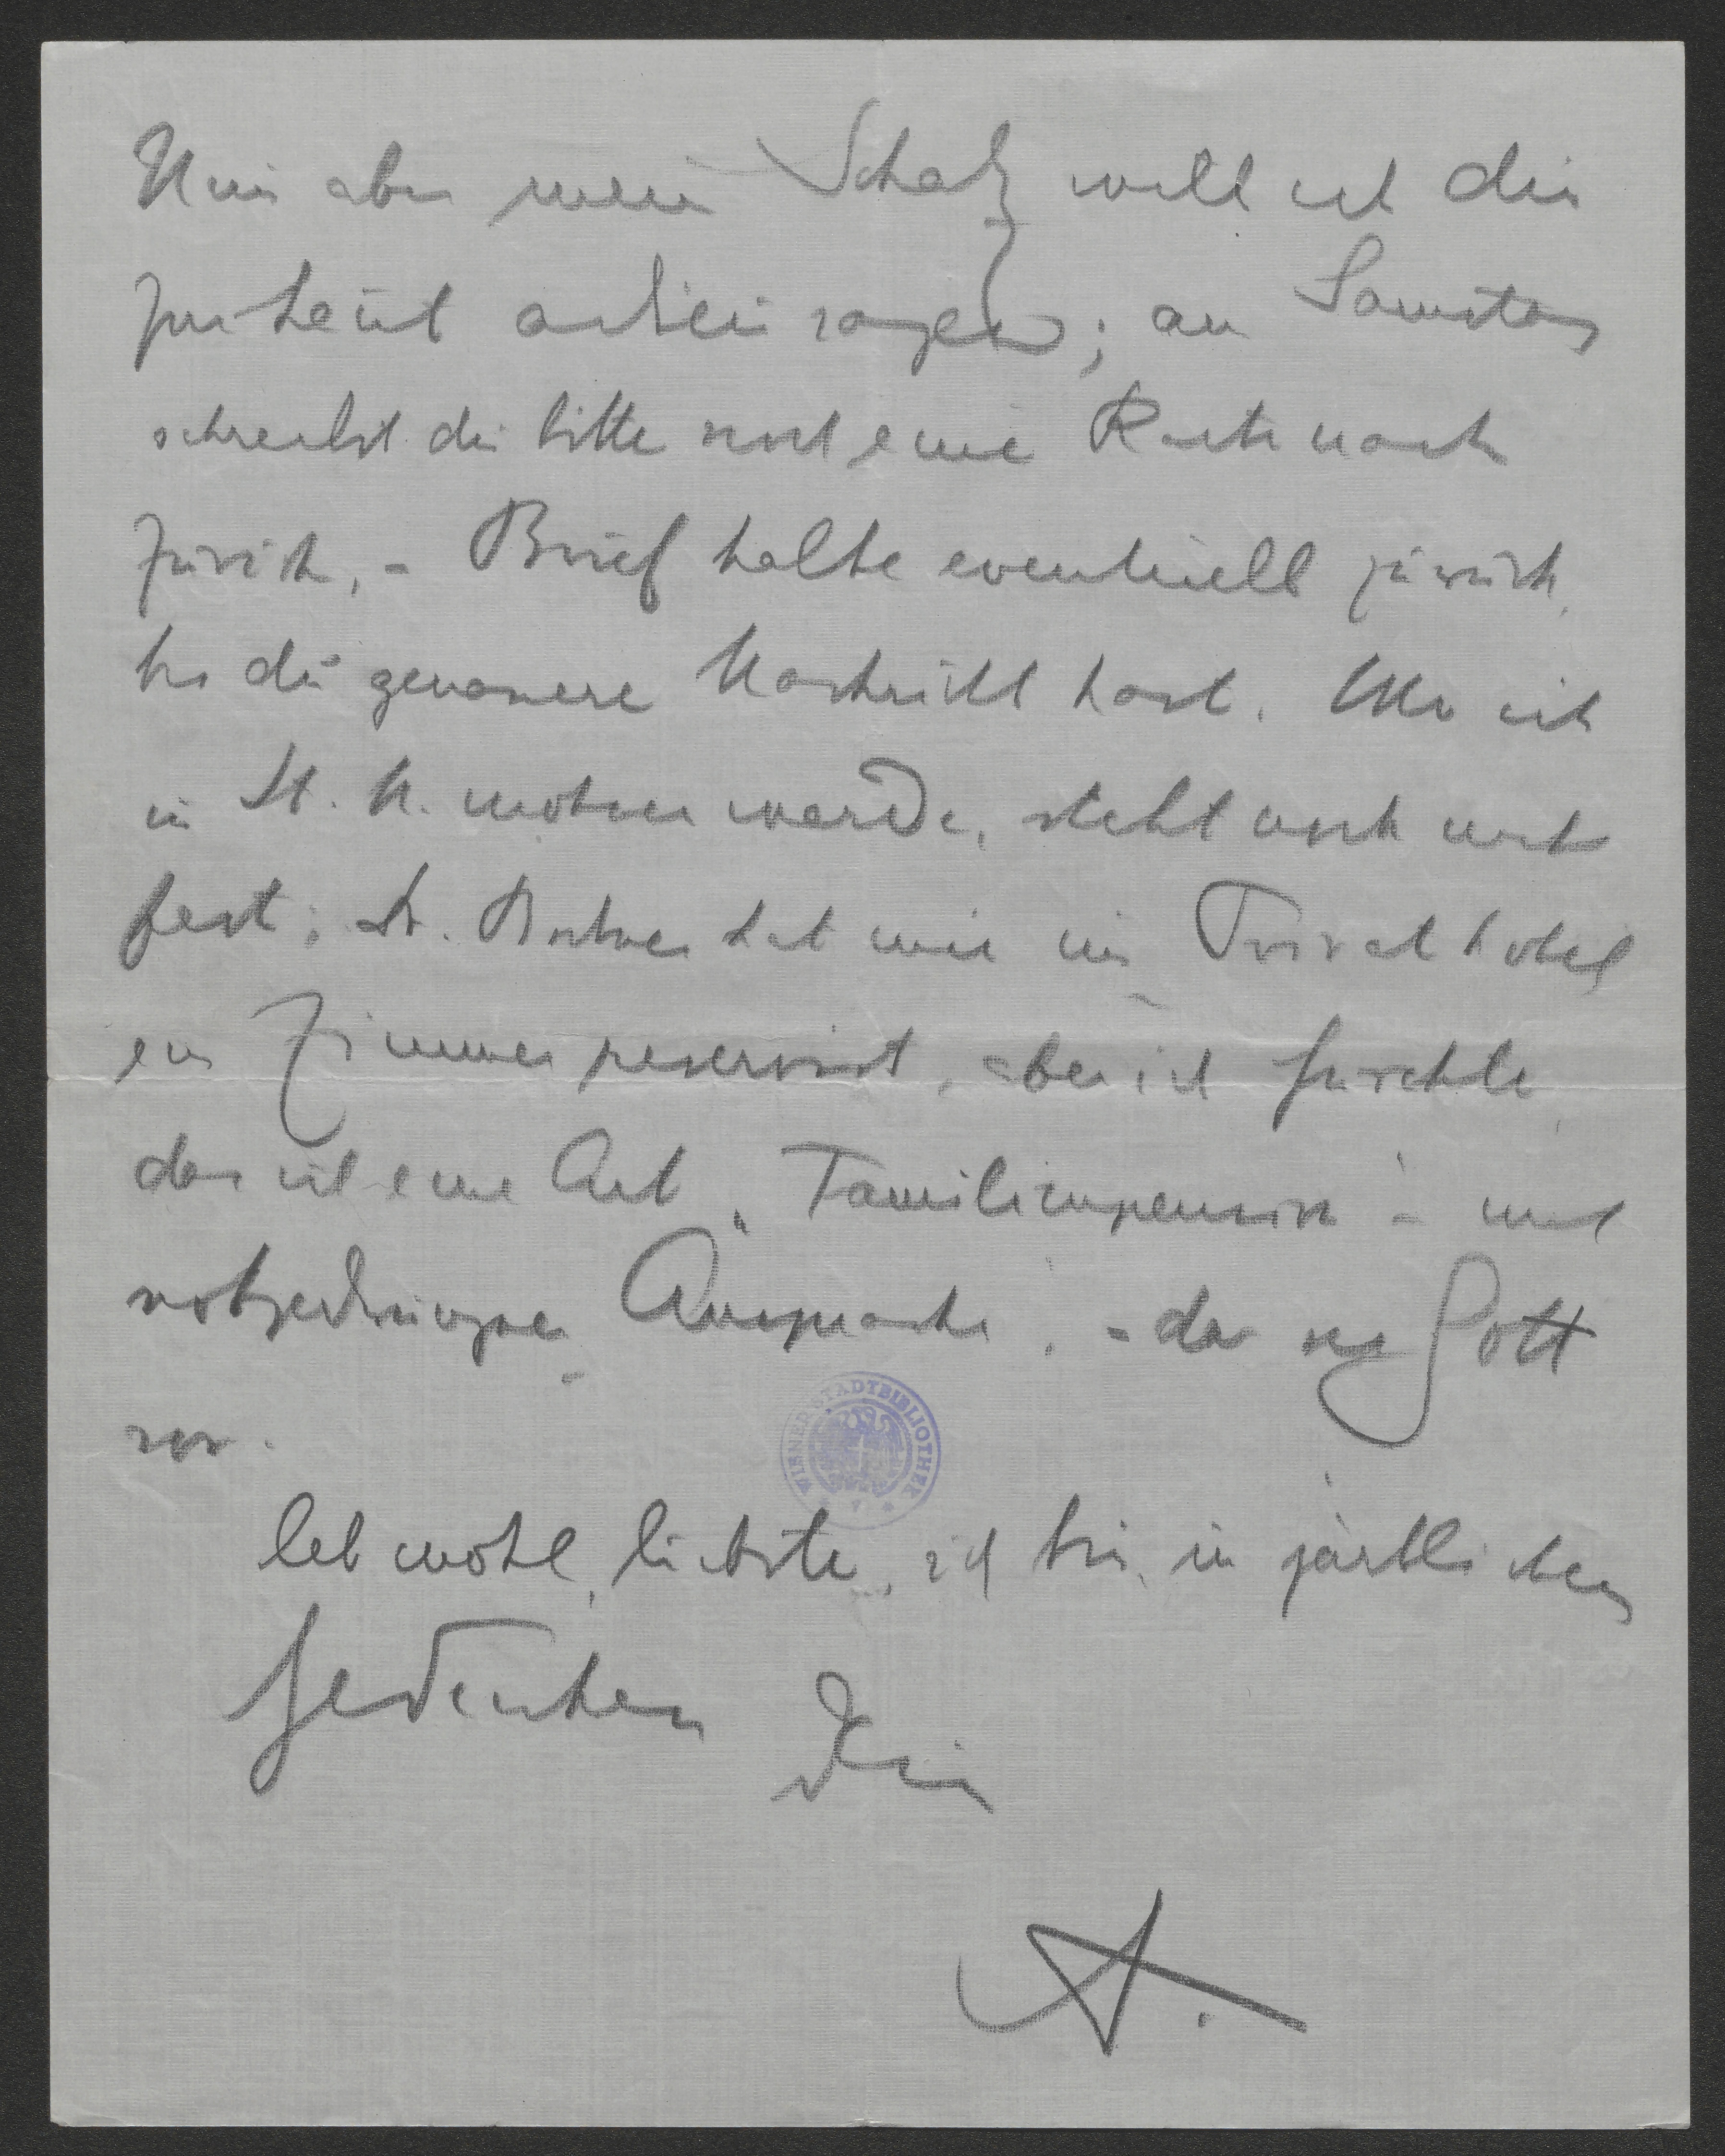 Nun aber mein Schatz will ich dir
für heut adieu sagen; am Samstag
schreibst du bitte noch eine Karte nach
Zürich, - Brief halte eventuell zurück,
bis du genauere Nachricht hast. Wo ich
in St. M. wohnen werde, steht noch nicht
fest; Dr. hat mir im Privathotel
ein Zimmer reservirt, aber ich fürchte,
das ist eine Art „Familienpension“ - mit
notgedrungner Ansprache, - da sei Gott
vor.
WIENER STADTBIBLIOTHEK
leb wohl, liebste, ich bin in zärtlichem
Gedenken Dein
A.